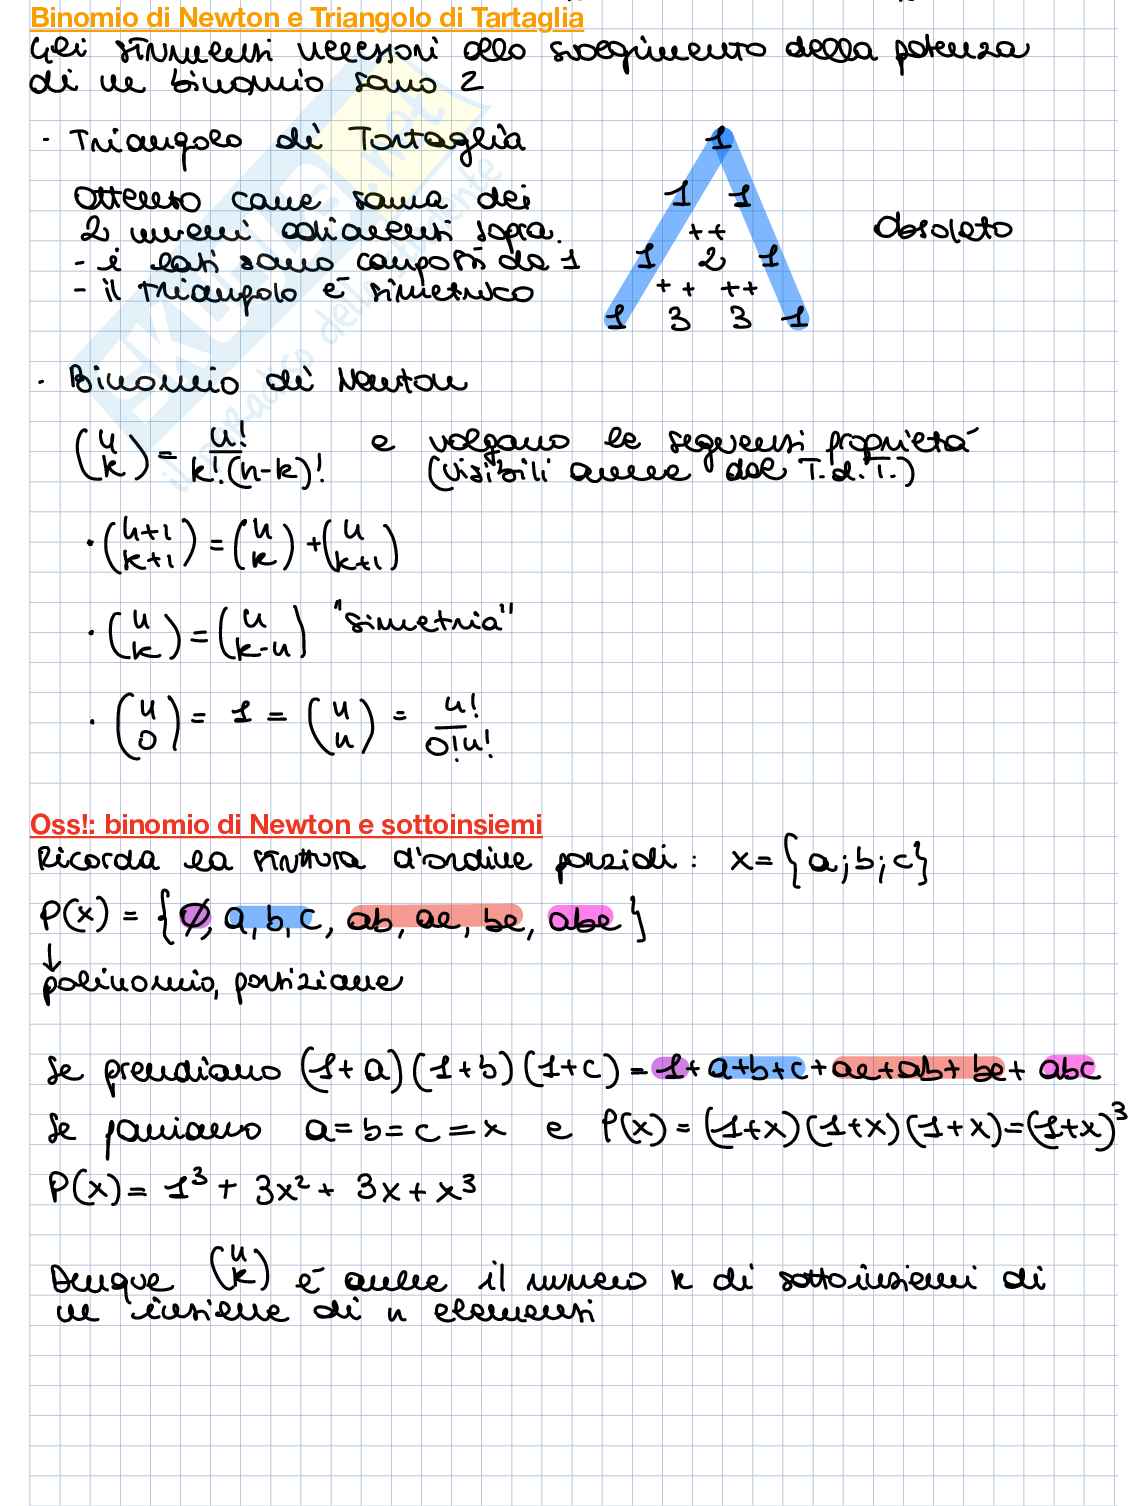 Binomio di Newton e Triangolo di Tartaglia
Gli strumenti necessari allo svolgimento della potenza
di un binomio sono 2
· Triangolo di Tartaglia
Ottenuto come somma dei
2 numeri adiacenti sopra.
- i lati sono composti da 1
- il triangolo è simmetrico
1
1 1
+ +
1 2 1
+ + + +
1 3 3 1
Obsoleto
· Binomio di Newton
(n k) = n! / k!(n-k)! e valgano le seguenti proprietà
(visibili anche dal T.d.T.)
· (n+1 k+1) = (n k) + (n k+1)
· (n k) = (n k-n) "simetria"
· (n 0) = 1 = (n n) = n! / 0!n!
Oss!: binomio di Newton e sottoinsiemi
Ricorda la struttura d'ordine parziali : x = {a;b;c}
P(x) = {∅, a, b, c, ab, ac, bc, abc}
↓
polinomio, partizione
Se prendiamo (1+a)(1+b)(1+c) = 1+a+b+c+ac+ab+bc+abc
Se poniamo a=b=c=x e P(x) = (1+x)(1+x)(1+x)=(1+x)³
P(x) = 1³ + 3x² + 3x + x³
Dunque (n k) è anche il numero k di sottoinsiemi di
un insieme di n elementi
SKUOLA.net
il paradiso dello studente